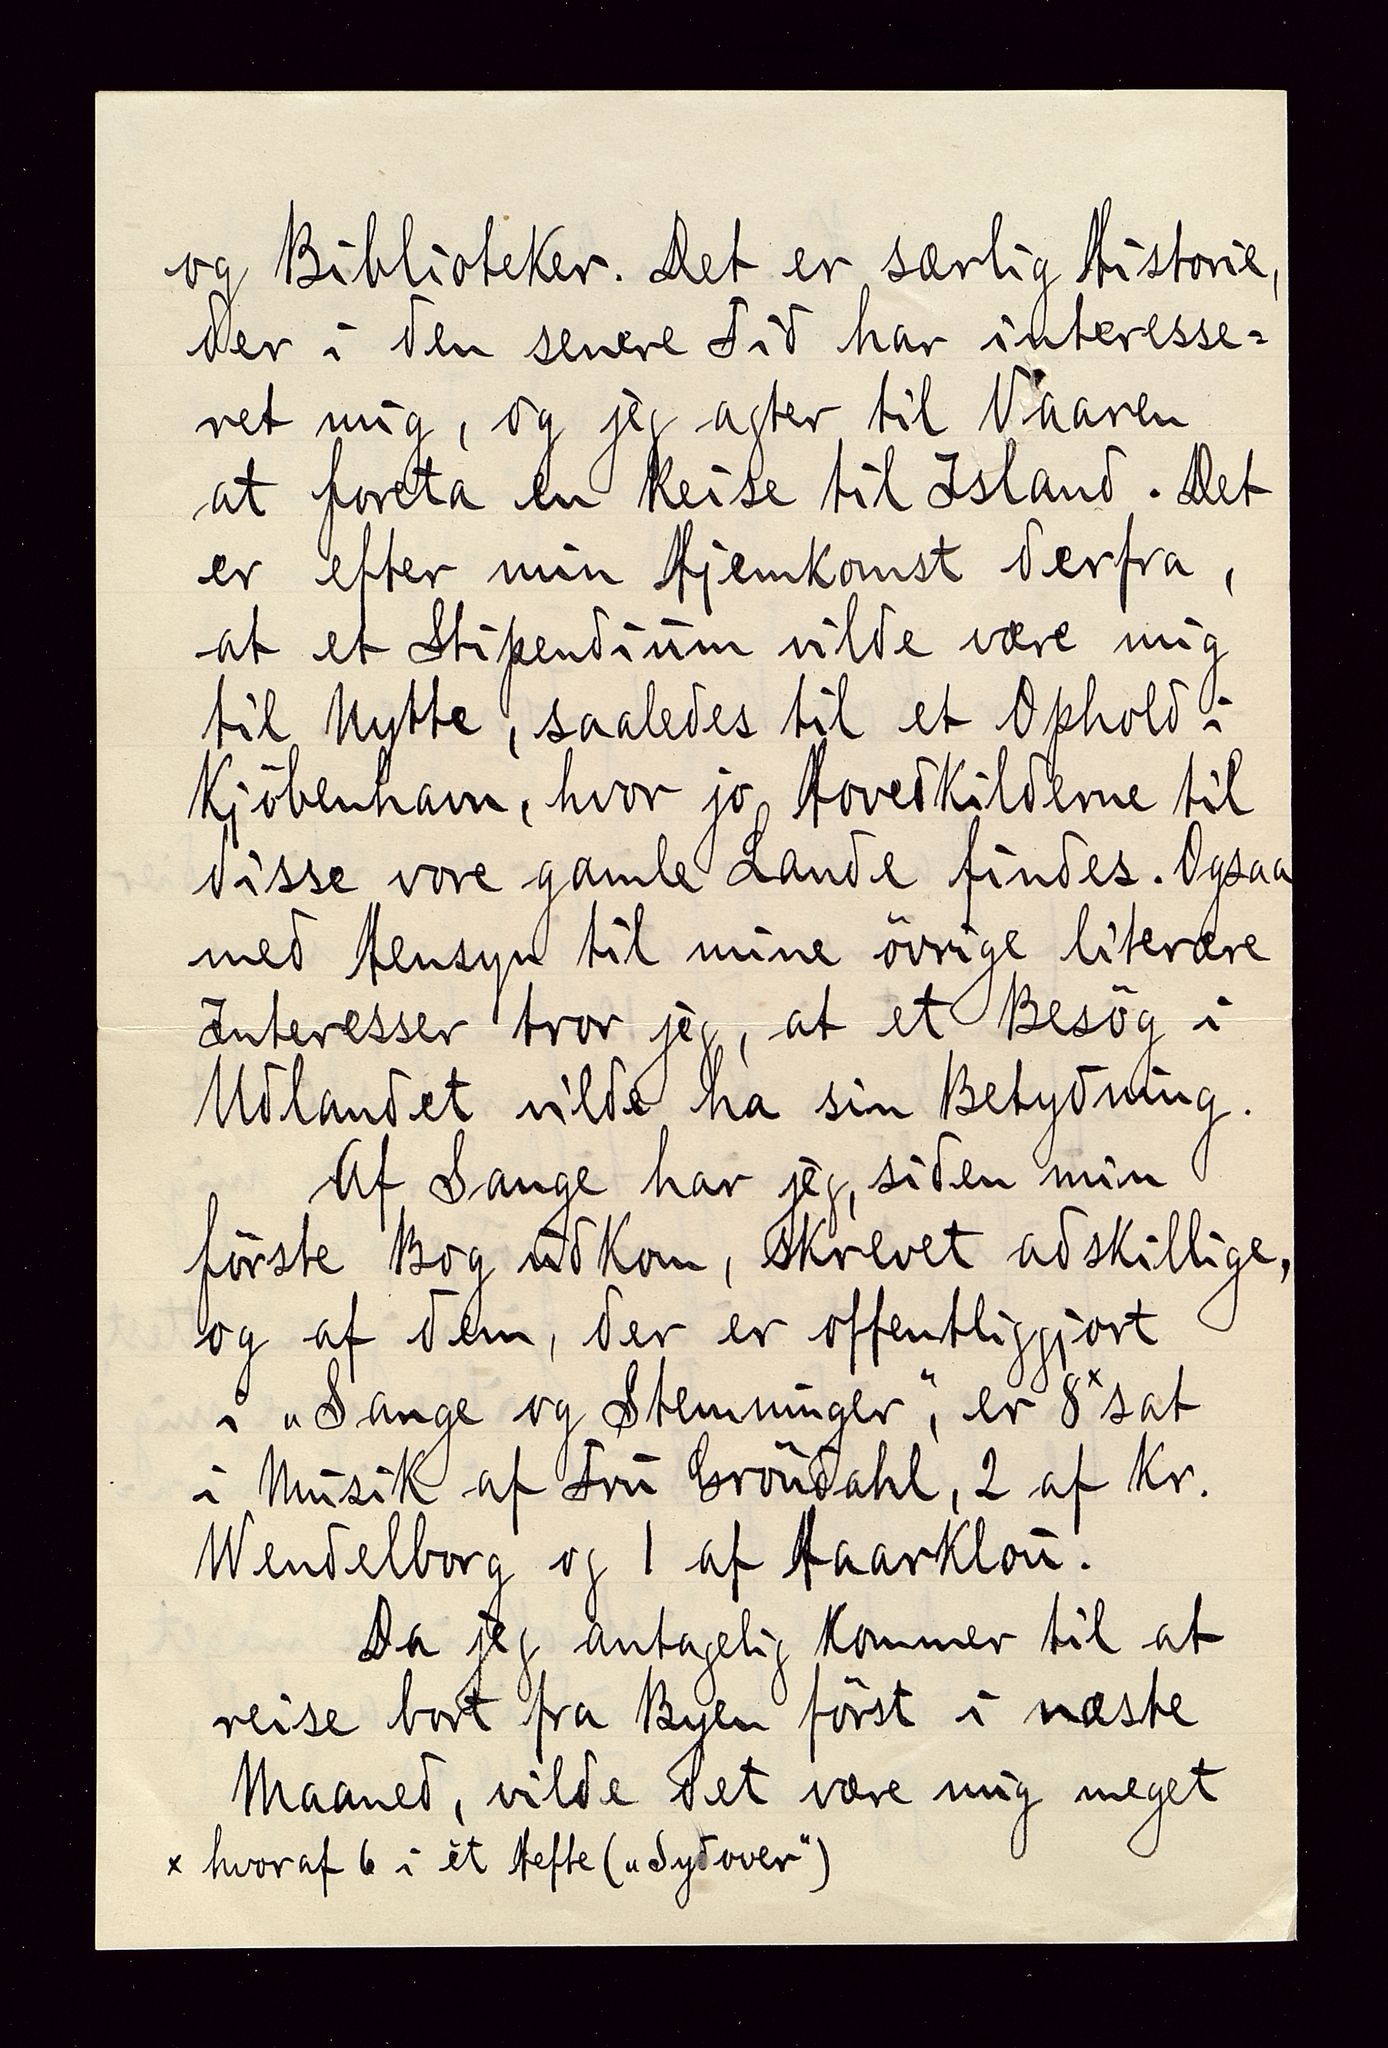 og Biblioteker. Det er særlig Historie,
der i den senere Tid har interesse=
ret mig, og jeg agter til Vaaren
at foreta en Reise til Island. Det
er efter min Hjemkomst derfra,
at et Stipendium vilde være mig
til Nytte, saaledes til et Ophold i
Kjöbenhavn, hvor jo Hovedkilderne til
disse vore gamle Lande findes. Ogsaa
med Hensyn til mine övrige literære
Interesser tror jeg, at et Besög i
Udlandet vilde ha sin Betydning.
Af Sange har jeg, siden min
förste Bog udkom, skrevet adskillige,
og af dem, der er offentliggjort
i „Sange og Stemninger“, er 8 x sat
i Musik af Fru Gröndahl, 2 af Kr.
Wendelborg og 1 af Haarklou.
Da jeg antagelig kommer til at
reise bort fra Byen först i næste
Maaned, vilde det være mig meget
x hvoraf 6 i ét Hefte („Sydover“)